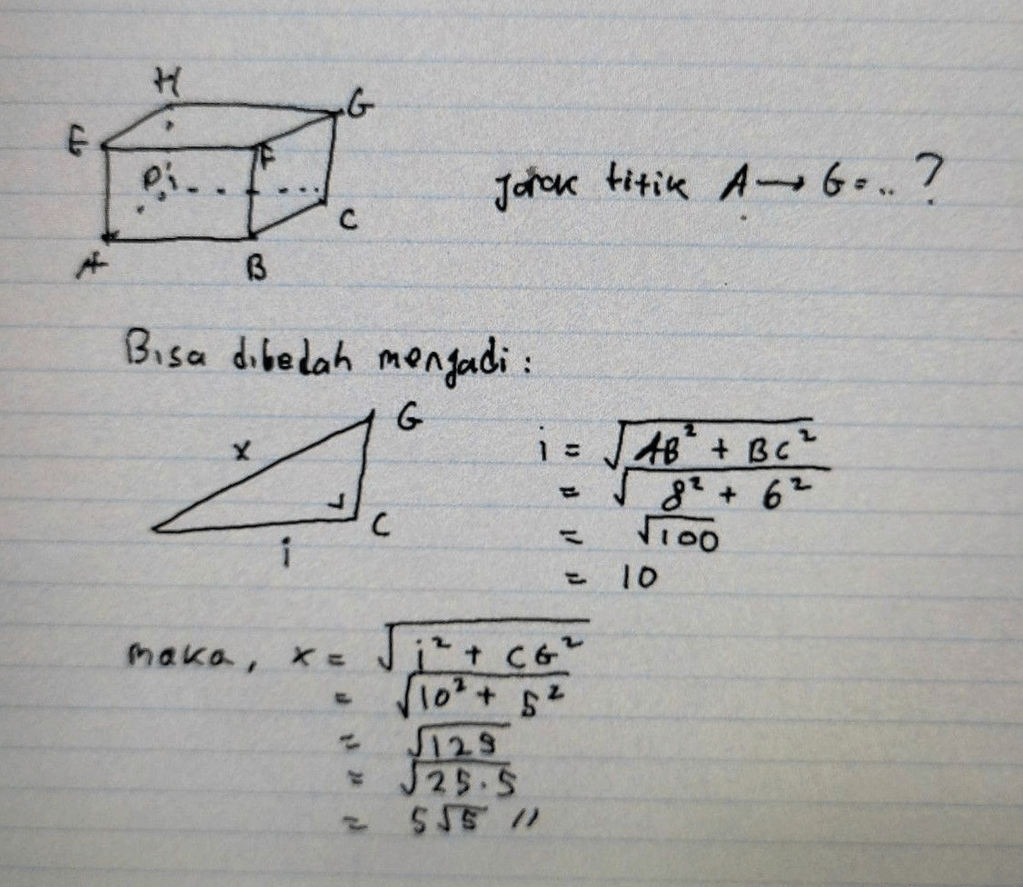 H
G
E
F
D
C
A
B
jarak titik A → G = ..?
Bisa dibedah menjadi :
G
x
C
i
i = √AB² + BC²
= √8² + 6²
= √100
= 10
maka, x = √i² + CG²
= √10² + 5²
= √125
= √25.5
= 5√5 //